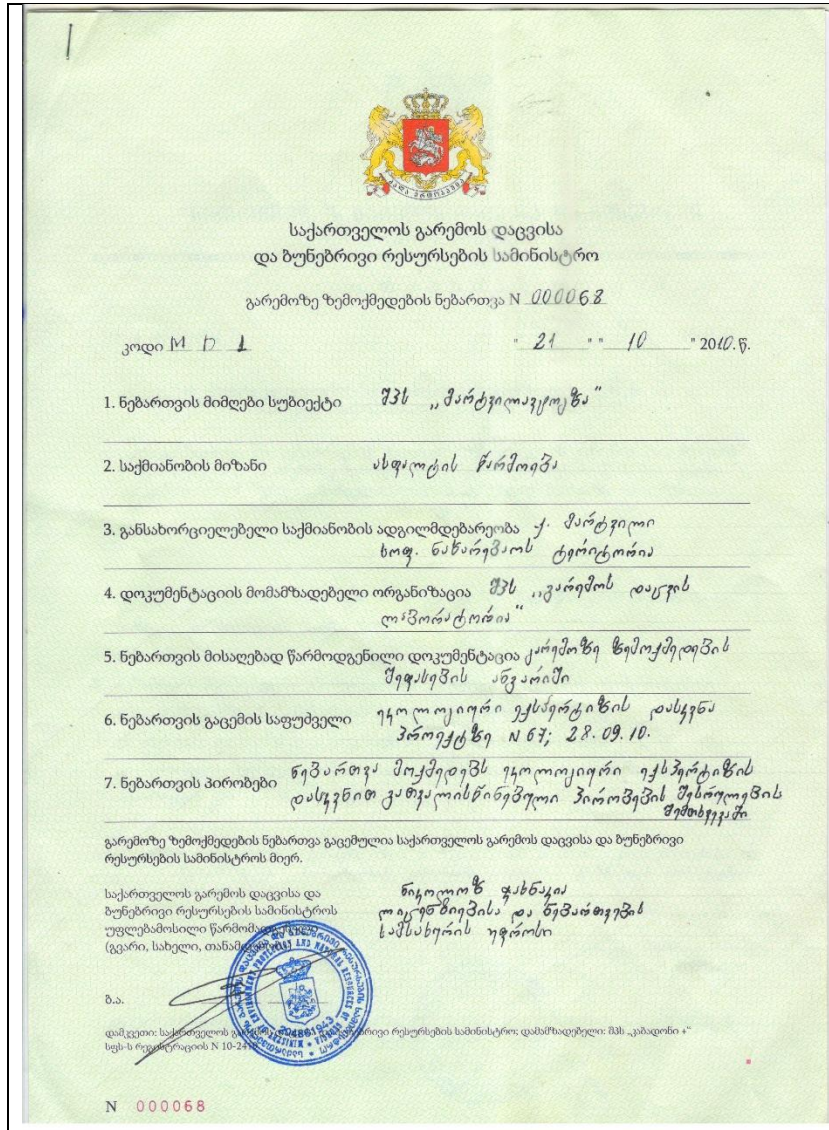 საქართველოს გარემოს დაცვისა
და ბუნებრივი რესურსების სამინისტრო
გარემოზე ზემოქმედების ნებართვა N 000068
კოდი MD1 " 21 " " 10 " 2010.წ.
1. ნებართვის მიმღები სუბიექტი შპს „მარტვილავტოგზა“
2. საქმიანობის მიზანი ასფალტის წარმოება
3. განსახორციელებელი საქმიანობის ადგილმდებარეობა ქ. მარტვილი
სოფ. ტერიტორია
4. დოკუმენტაციის მომამზადებელი ორგანიზაცია შპს „გარემოს დაცვის
ლაბორატორია“
5. ნებართვის მისაღებად წარმოდგენილი დოკუმენტაცია გარემოზე ზემოქმედების
შეფასების ანგარიში
6. ნებართვის გაცემის საფუძველი ეკოლოგიური ექსპერტიზის დასკვნა
პროექტზე N 67; 28.09.10.
7. ნებართვის პირობები ნებართვა მოქმედებს ეკოლოგიური ექსპერტიზის
დასკვნით გათვალისწინებული პირობების შესრულების
შემთხვევაში
გარემოზე ზემოქმედების ნებართვა გაცემულია საქართველოს გარემოს დაცვისა და ბუნებრივი
რესურსების სამინისტროს მიერ.
საქართველოს გარემოს დაცვისა და
ბუნებრივი რესურსების სამინისტროს
უფლებამოსილი
(გვარი, სახელი,
ნიკოლოზ ჭახნაკია
ლიცენზიებისა და ნებართვების
სამსახურის უფროსი
ბ.ა.
MINISTRY OF ENVIRONMENT PROTECTION AND NATURAL RESOURCES
204861943
დამკვეთი: საქართველოს რესურსების სამინისტრო; დამამზადებელი: შპს „კაბადონი +“
სფს-ს რეგისტრაციის N
N 000068